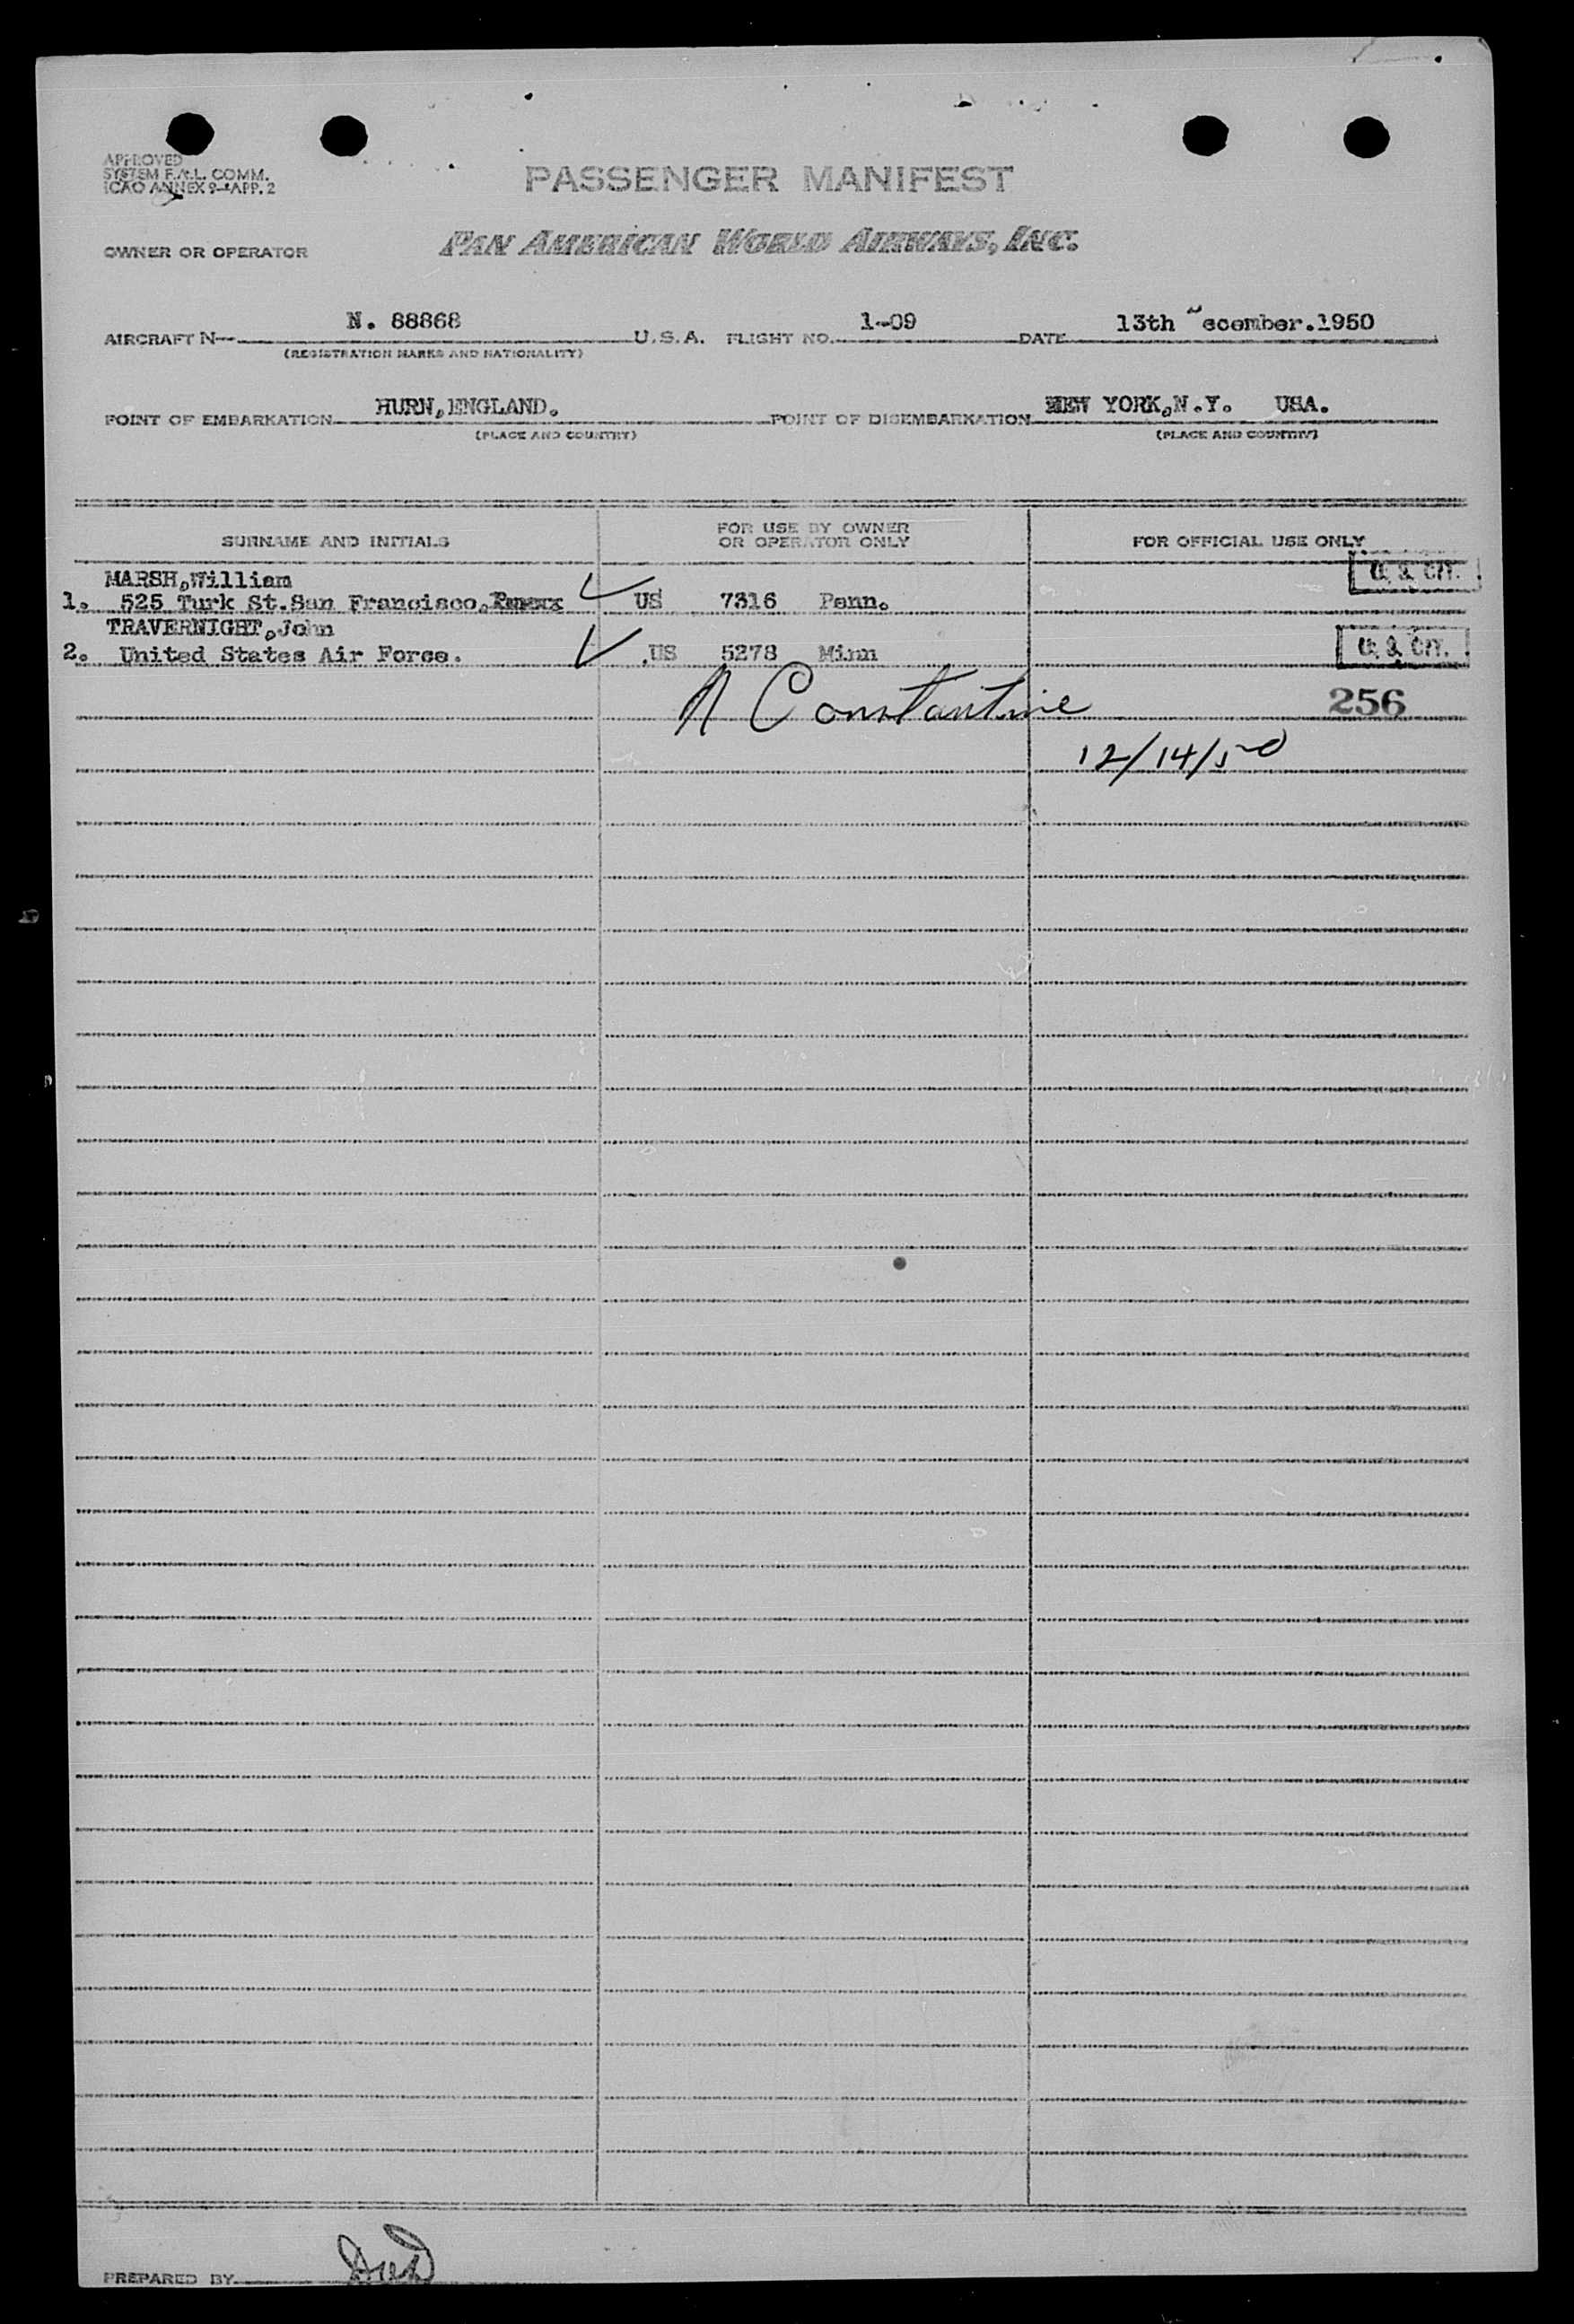 APPROVED
SYSTEM F.A.L. COMM.
ICAO ANNEX 9—APP. 2
PASSENGER MANIFEST
OWNER OR OPERATOR PAN AMERICAN WORLD AIRWAYS, INC.
AIRCRAFT N— N. 88868 U.S.A. FLIGHT NO. 1-09 DATE 13th ecember.1950
(REGISTRATION MARKS AND NATIONALITY)
POINT OF EMBARKATION HURN,ENGLAND. POINT OF DISEMBARKATION NEW YORK,N.Y. USA.
(PLACE AND COUNTRY) (PLACE AND COUNTRY)
SURNAME AND INITIALS FOR USE BY OWNER OR OPERATOR ONLY FOR OFFICIAL USE ONLY
MARSH,William U. S. CIT.
1. 525 Turk St.San Francisco, US 7316 Penn.
TRAVERNIGHT,John
2. United States Air Force. US 5278 Minn U. S. CIT.
N Constantine 256
12/14/50
PREPARED BY